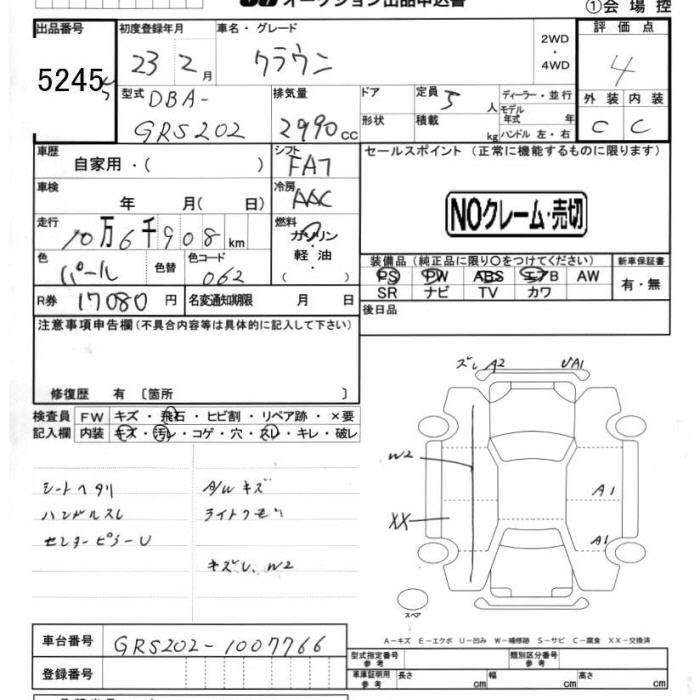 オークション出品申込書
①会場控
出品番号 初度登録年月 車名・グレード 2WD ・ 4WD 評価点
5245 23 2月 クラウン 4
型式 DBA-GRS202 排気量 2990cc ドア 形状 定員 5人 積載 kg ディーラー・並行 モデル年式 年 ハンドル 左・右 外装 内装
C C
車歴 自家用・( ) シフト FA7 セールスポイント (正常に機能するものに限ります)
車検 年 月( 日) 冷房 AAC
NOクレーム・売切
走行 10万6千908km 燃料 ガソリン・軽油・( )
色 パール 色替 色コード 062
装備品 (純正品に限り○をつけてください) 新車保証書
PS PW ABS エアB AW 有・無
SR ナビ TV カワ
R券 17080円 名変通知期限 月 日 後日品
注意事項申告欄 (不具合内容等は具体的に記入して下さい)
修復歴 有 〔箇所 〕
検査員 FW キズ・飛石・ヒビ割・リペア跡・×要
記入欄 内装 キズ・汚レ・コゲ・穴・スレ・キレ・破レ
シートヘタリ A/Wキズ
ハンドルスレ
センターピラーU
W2
ズレ A2 UA1
W2
A1
XX
A1
スペア
A-キズ E-エクボ U-凹み W-補修跡 S-サビ C-腐食 XX-交換済
車台番号 GRS202-1007766
型式指定番号 参考 類別区分番号 参考
登録番号
車庫証明用 参考 長さ cm 幅 cm 高さ cm